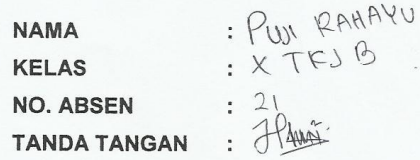 NAMA : PUJI RAHAYU
KELAS : X TKJ B
NO. ABSEN : 21
TANDA TANGAN :